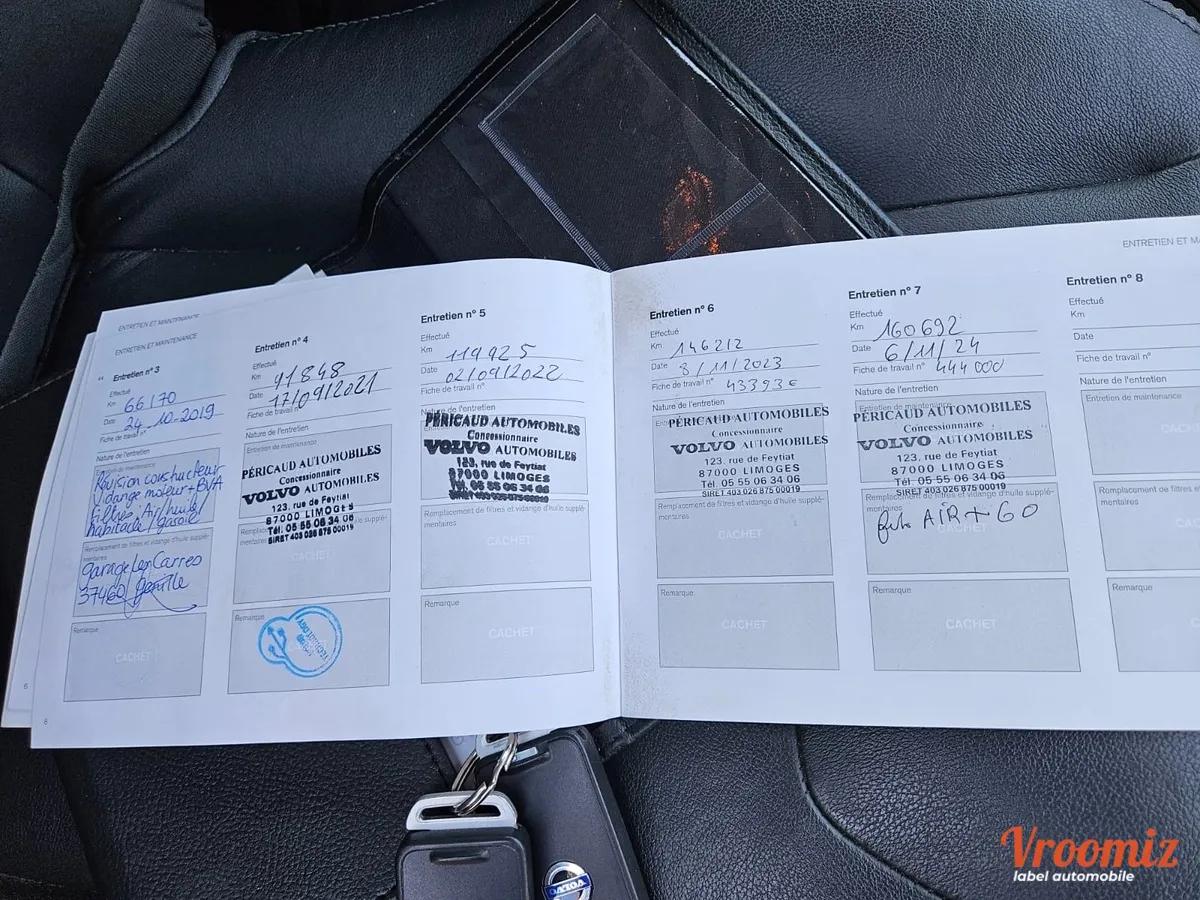 ENTRETIEN ET MAINTENANCE
ENTRETIEN ET MAINTENANCE
Entretien n° 3
Effectué
Km 66170
Date 24-10-2019
Fiche de travail n°
Nature de l'entretien
Révision constructeur
Vidange moteur + BVA
Filtres: Air/huile/
habitacle/gasoil
Remplacement de filtres et vidange d'huile supplé-
mentaires
garage Les Carres
37460
Remarque
CACHET
Entretien n° 4
Effectué
Km 91848
Date 17/09/2021
Fiche de travail n°
Nature de l'entretien
Entretien de maintenance
PÉRICAUD AUTOMOBILES
Concessionnaire
VOLVO AUTOMOBILES
123, rue de Feytiat
87000 LIMOGES
Tél. 05 55 06 34 06
SIRET 403 026 875 00019
Remarque
Entretien n° 5
Effectué
Km 119925
Date 02/09/2022
Fiche de travail n°
Nature de l'entretien
PÉRICAUD AUTOMOBILES
Concessionnaire
VOLVO AUTOMOBILES
123, rue de Feytiat
87000 LIMOGES
Tél. 05 55 06 34 06
SIRET 403 026 875 00019
Remplacement de filtres et vidange d'huile supplé-
mentaires
CACHET
Remarque
CACHET
Entretien n° 6
Effectué
Km 146212
Date 8/11/2023
Fiche de travail n° 43393€
Nature de l'entretien
PÉRICAUD AUTOMOBILES
Concessionnaire
VOLVO AUTOMOBILES
123, rue de Feytiat
87000 LIMOGES
Tél. 05 55 06 34 06
SIRET 403 026 875 00019
Remplacement de filtres et vidange d'huile supplé-
mentaires
CACHET
Remarque
CACHET
Entretien n° 7
Effectué
Km 160692
Date 6/11/24
Fiche de travail n° 444000
Nature de l'entretien
Entretien de maintenance
PÉRICAUD AUTOMOBILES
Concessionnaire
VOLVO AUTOMOBILES
123, rue de Feytiat
87000 LIMOGES
Tél. 05 55 06 34 06
SIRET 403 026 875 00019
Remplacement de filtres et vidange d'huile supplé-
mentaires
AIR + GO
Remarque
CACHET
ENTRETIEN ET MA
Entretien n° 8
Effectué
Km
Date
Fiche de travail n°
Nature de l'entretien
Entretien de maintenance
Remplacement de filtres et
mentaires
Remarque
6
8
VOLVO
Vroomiz
label automobile